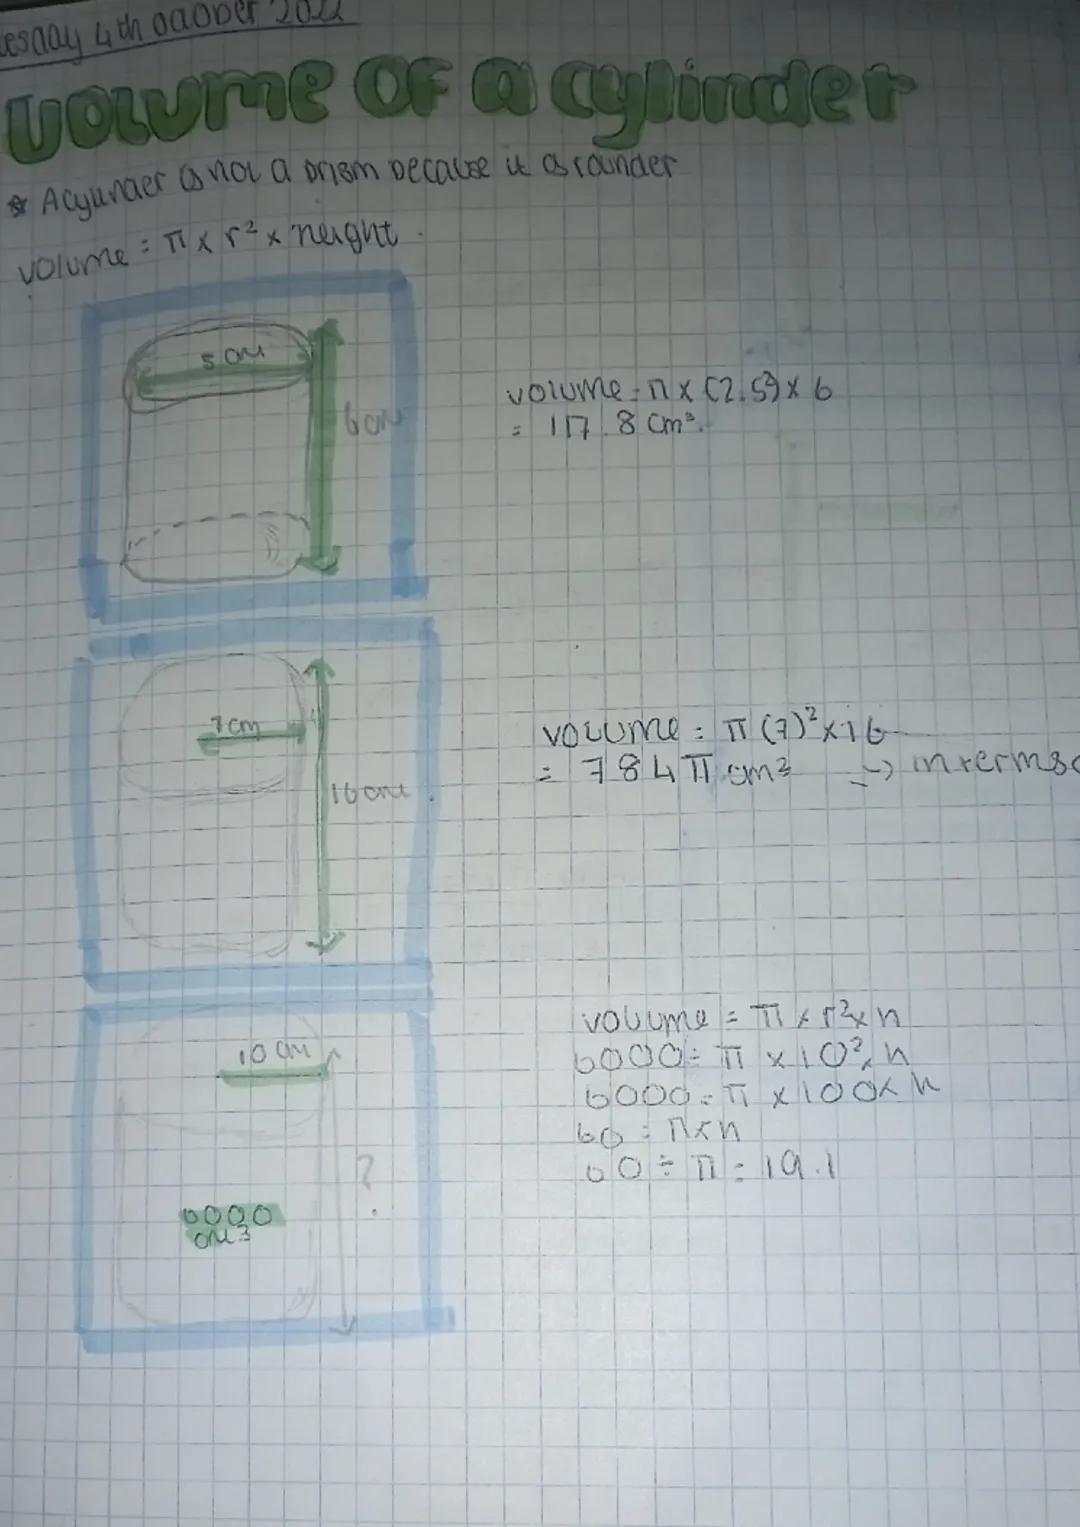 4th October 2022
Volume of a cylinder
* A cylinder is not a prism because it is rounder
volume = π x r² x height.
5cm
6cm
volume = π x (2.5²) x 6
= 117.8 cm³.
7cm
16cm
volume = π (7)² x 16
= 784π cm³ → in terms
10 cm
?
6000
cm3
volume = π x r² x h
6000 = π x 10² x h
6000 = π x 100 x h
60 = π x h
60 ÷ π = 19.1